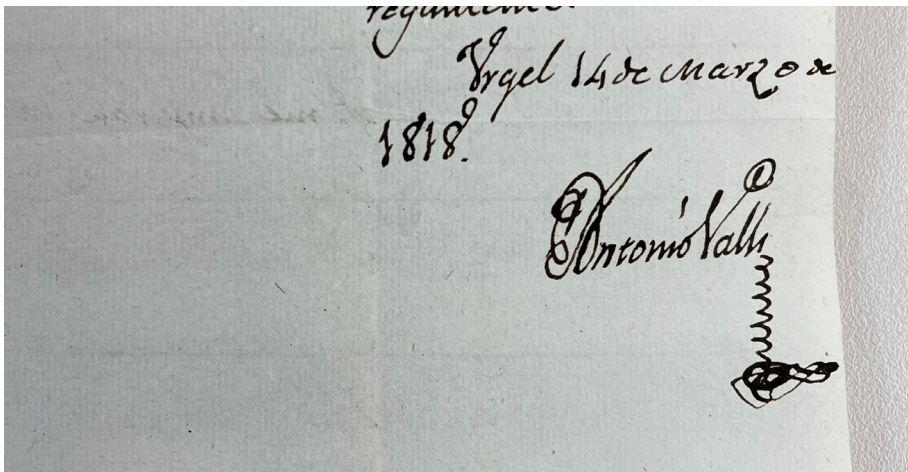 Urgel 14 de Marzo de
1818.
Antonio Valls